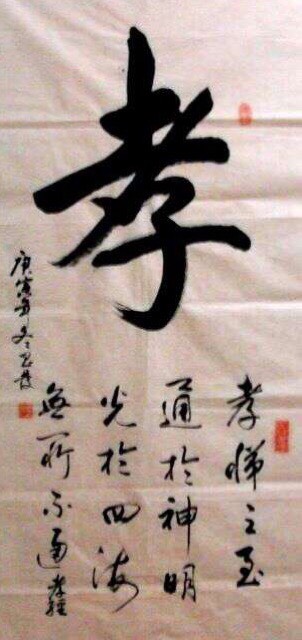 孝
孝悌之至
通於神明
光於四海
無所不通 孝經
庚寅年冬